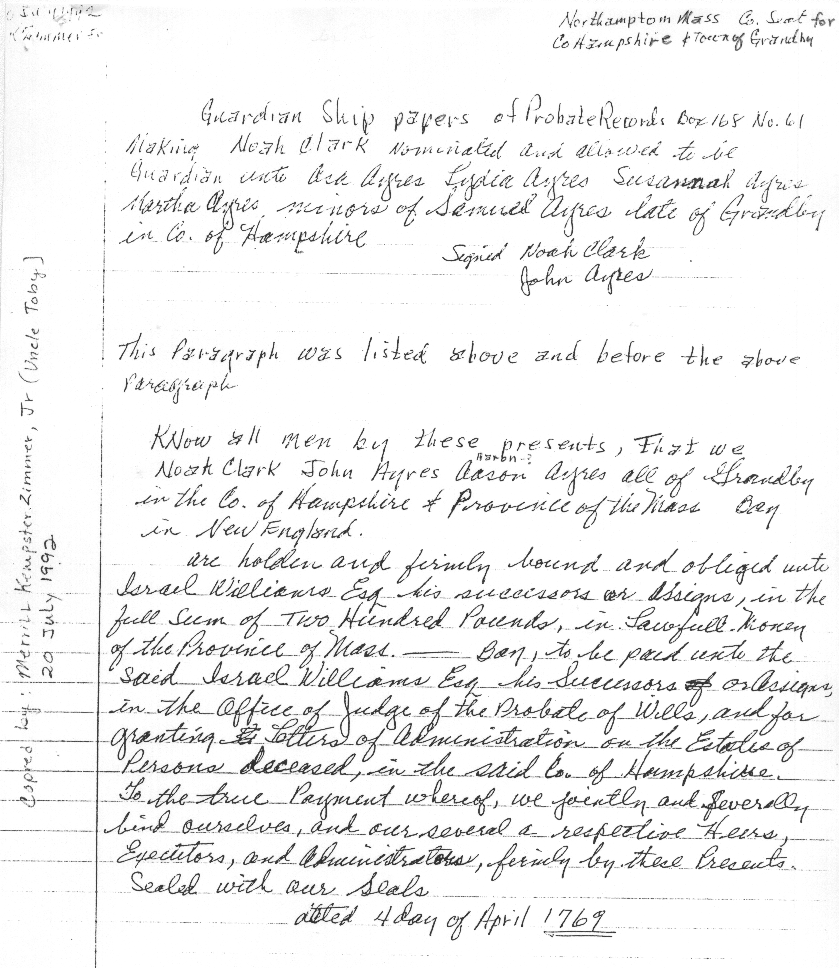 Northamptom Mass Co. Seat for
Co Hampshire & Town of Grandby
Guardian Ship papers of Probate Records Box 168 No. 61
Making Noah Clark nominated and allowed to be
Guardian unto Asa Ayres Lydia Ayres Susannah Ayres
Martha Ayres, minors of Samuel Ayres late of Grandby
in Co. of Hampshire
Signed Noah Clark
John Ayres
This Paragraph was listed above and before the above
Paragraph
Know all men by these presents, That we
Aaron-?
Noah Clark John Ayres Aason Ayres all of Grandby
in the Co. of Hampshire & Province of the Mass Bay
in New England.
are holden and firmly bound and obliged unto
Israel Williams Esq his successors or Assigns, in the
full Sum of Two Hundred Pounds, in Lawfull Money
of the Province of Mass. — Bay, to be paid unto the
said Israel Williams Esq his Successors or Assigns,
in the Office of Judge of the Probate of Wills, and for
granting Letters of Administration on the Estates of
Persons deceased, in the said Co. of Hampshire.
To the true Payment whereof, we jointly and severally
bind ourselves, and our several a respective Heirs,
Executors, and Administrators, firmly by these Presents.
Sealed with our Seals
dated 4 day of April 1769
Copied by: Merrill Kempster Zimmer, Jr (Uncle Toby)
20 July 1992